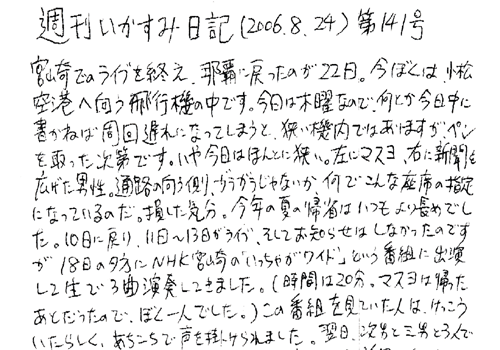 週刊いかすみ日記(2006.8.24)第141号
宮崎でのライブを終え、那覇に戻ったのが22日。今ぼくは、小松
空港へ向う飛行機の中です。今日は木曜なので、何とか今日中に
書かねば周回遅れになってしまうと、狭い機内ではありますが、ペン
を取った次第です。いや今日はほんとに狭い。左にマスヨ、右に新聞を
広げた男性。通路の向う側、ガラガラじゃないか、何でこんな座席の指定
になっているのだ。損した気分。今年の夏の帰省はいつもより長めでし
た。10日に戻り、11日〜13日がライブ、そしてお知らせはしなかったのです
が18日の夕方にNHK宮崎の「いっちゃがワイド」という番組に出演
して生で3曲演奏してきました。(時間は20分。マスヨは帰った
あとだったので、ぼく一人でした。)この番組を見ていた人は、けっこう
いたらしく、あちこちで声を掛けられました。翌日、次男と三男と3人で